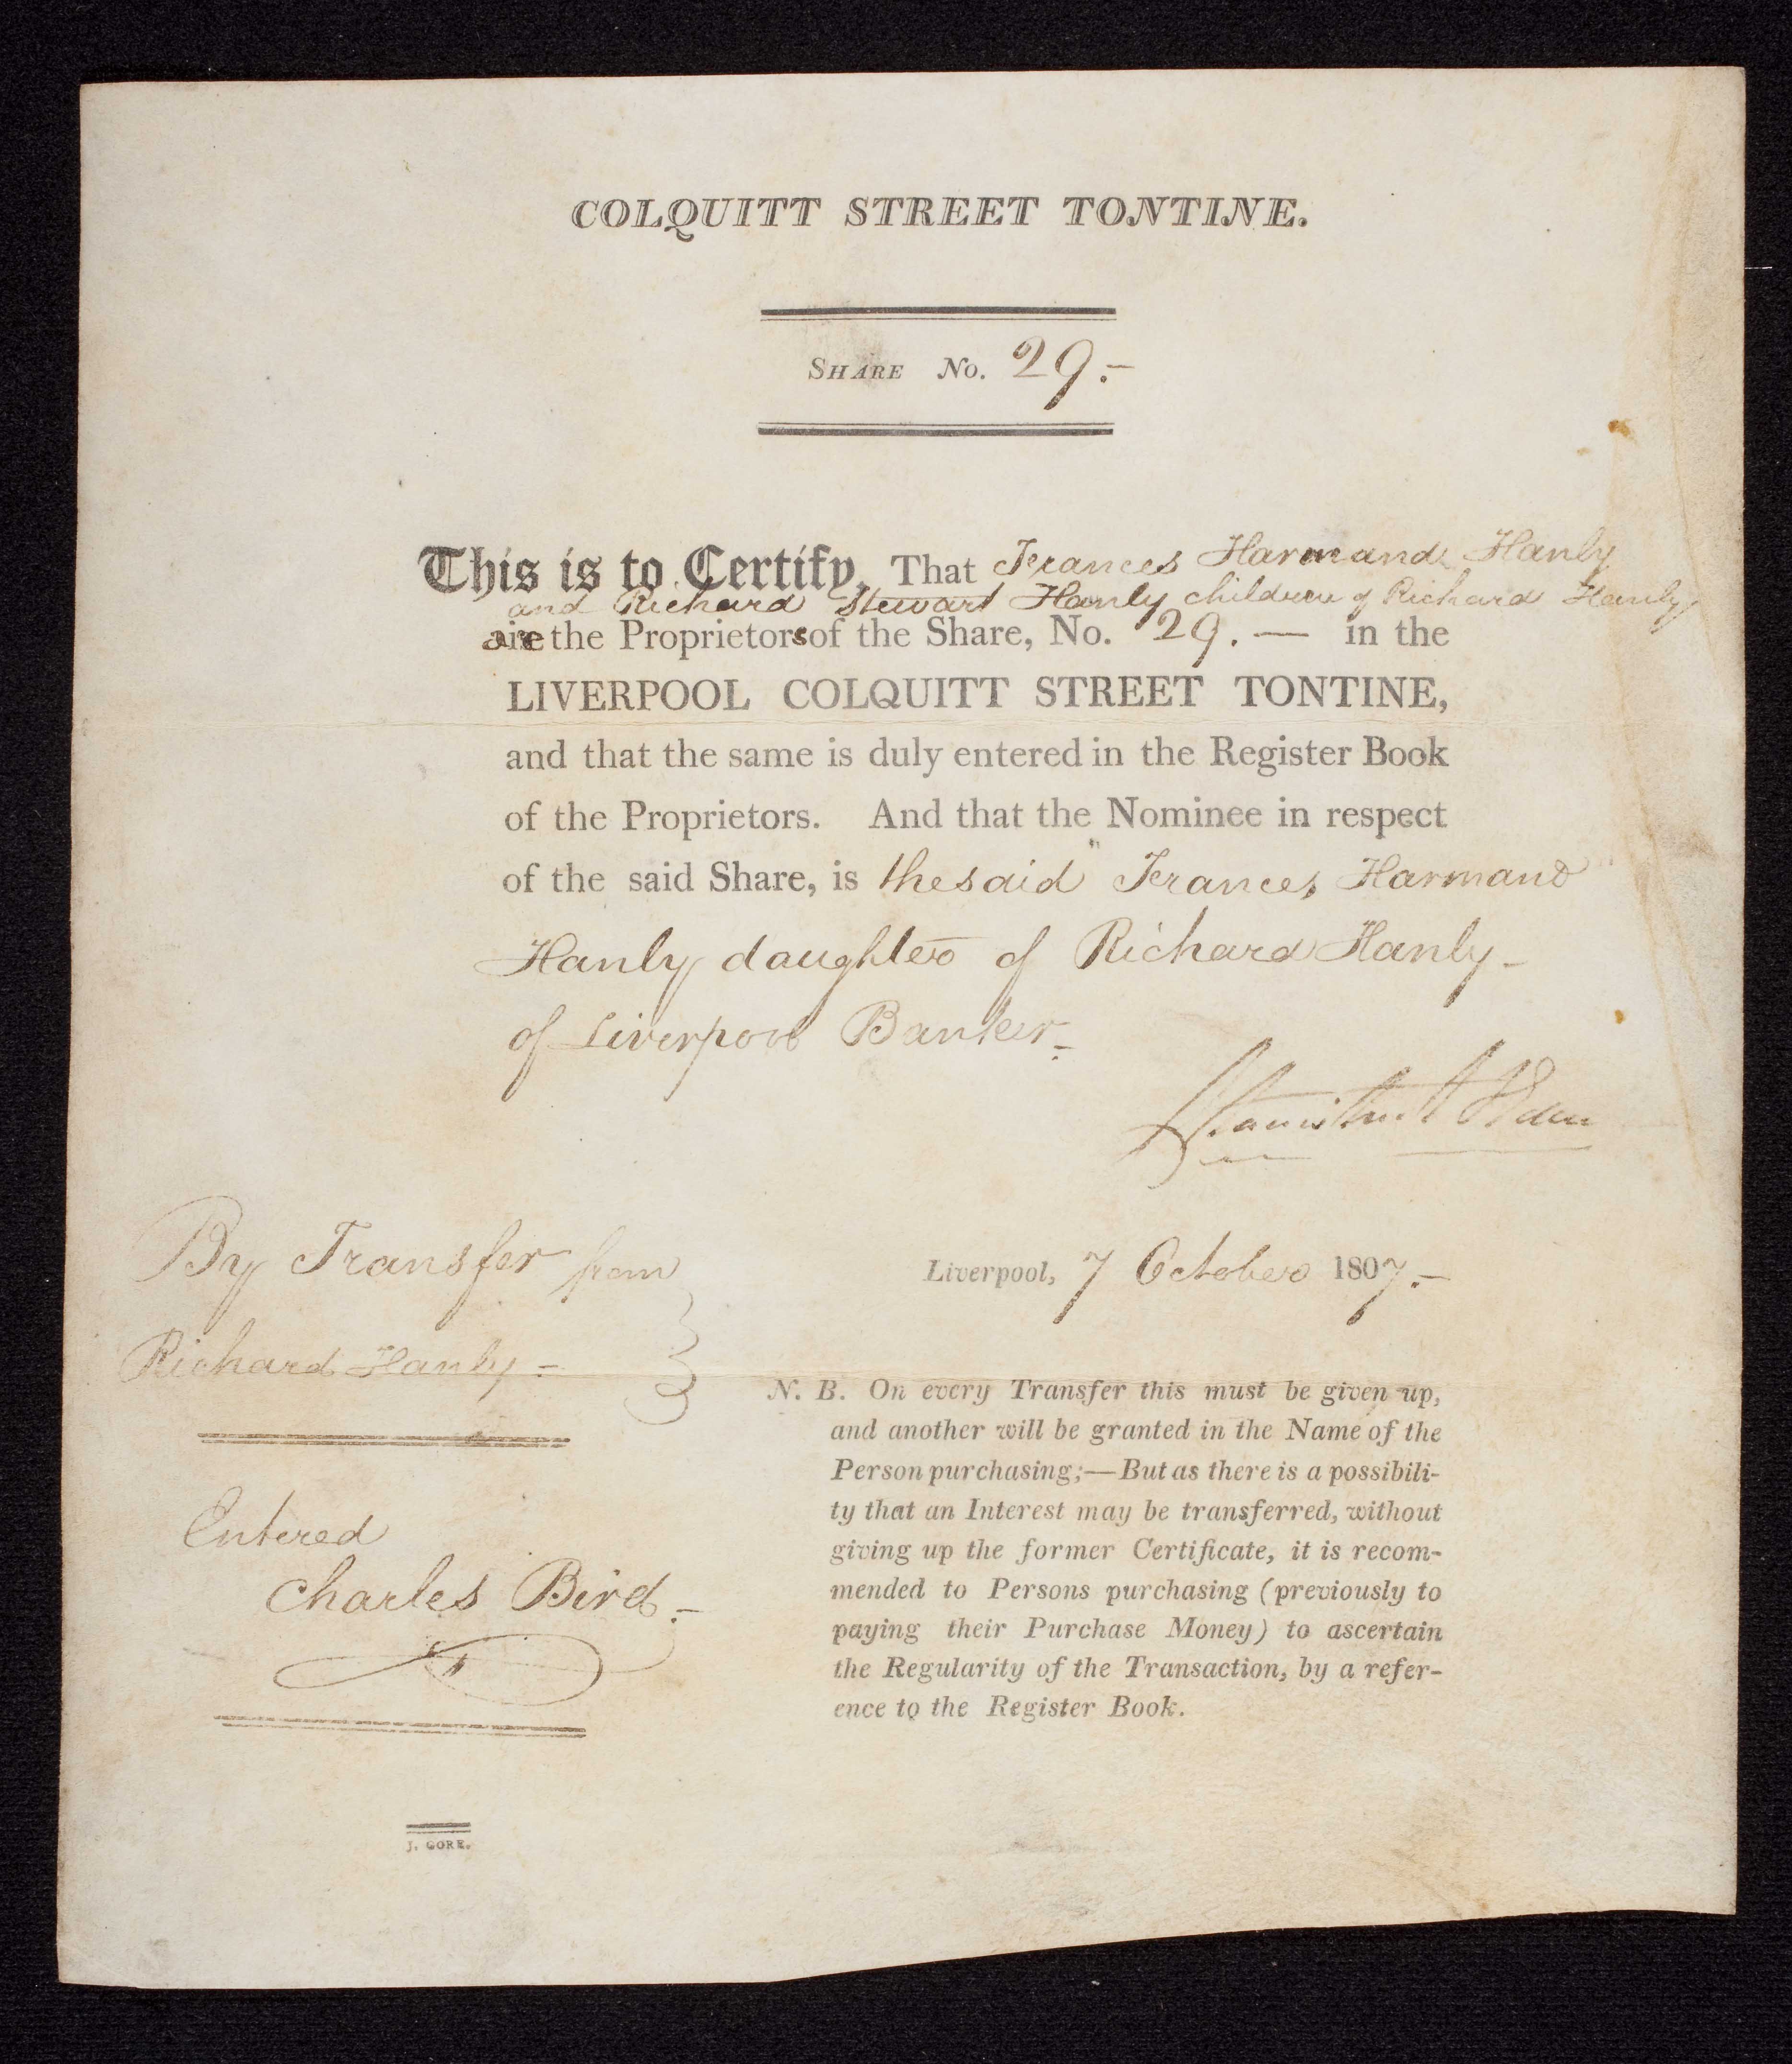 COLQUITT STREET TONTINE.
SHARE No. 29.-
This is to Certify, That Frances Harmand Hanly
and Richard Stewart Hanly children of Richard Hanly
are the Proprietors of the Share, No. 29. — in the
LIVERPOOL COLQUITT STREET TONTINE,
and that the same is duly entered in the Register Book
of the Proprietors. And that the Nominee in respect
of the said Share, is the said Frances Harmand
Hanly daughter of Richard Hanly -
of Liverpool Banker -
By Transfer from
Richard Hanly -
Entered
Charles Bird -
Liverpool, 7 October 1807.-
N. B. On every Transfer this must be given up,
and another will be granted in the Name of the
Person purchasing;—But as there is a possibili-
ty that an Interest may be transferred, without
giving up the former Certificate, it is recom-
mended to Persons purchasing (previously to
paying their Purchase Money) to ascertain
the Regularity of the Transaction, by a refer-
ence to the Register Book.
J. GORE.